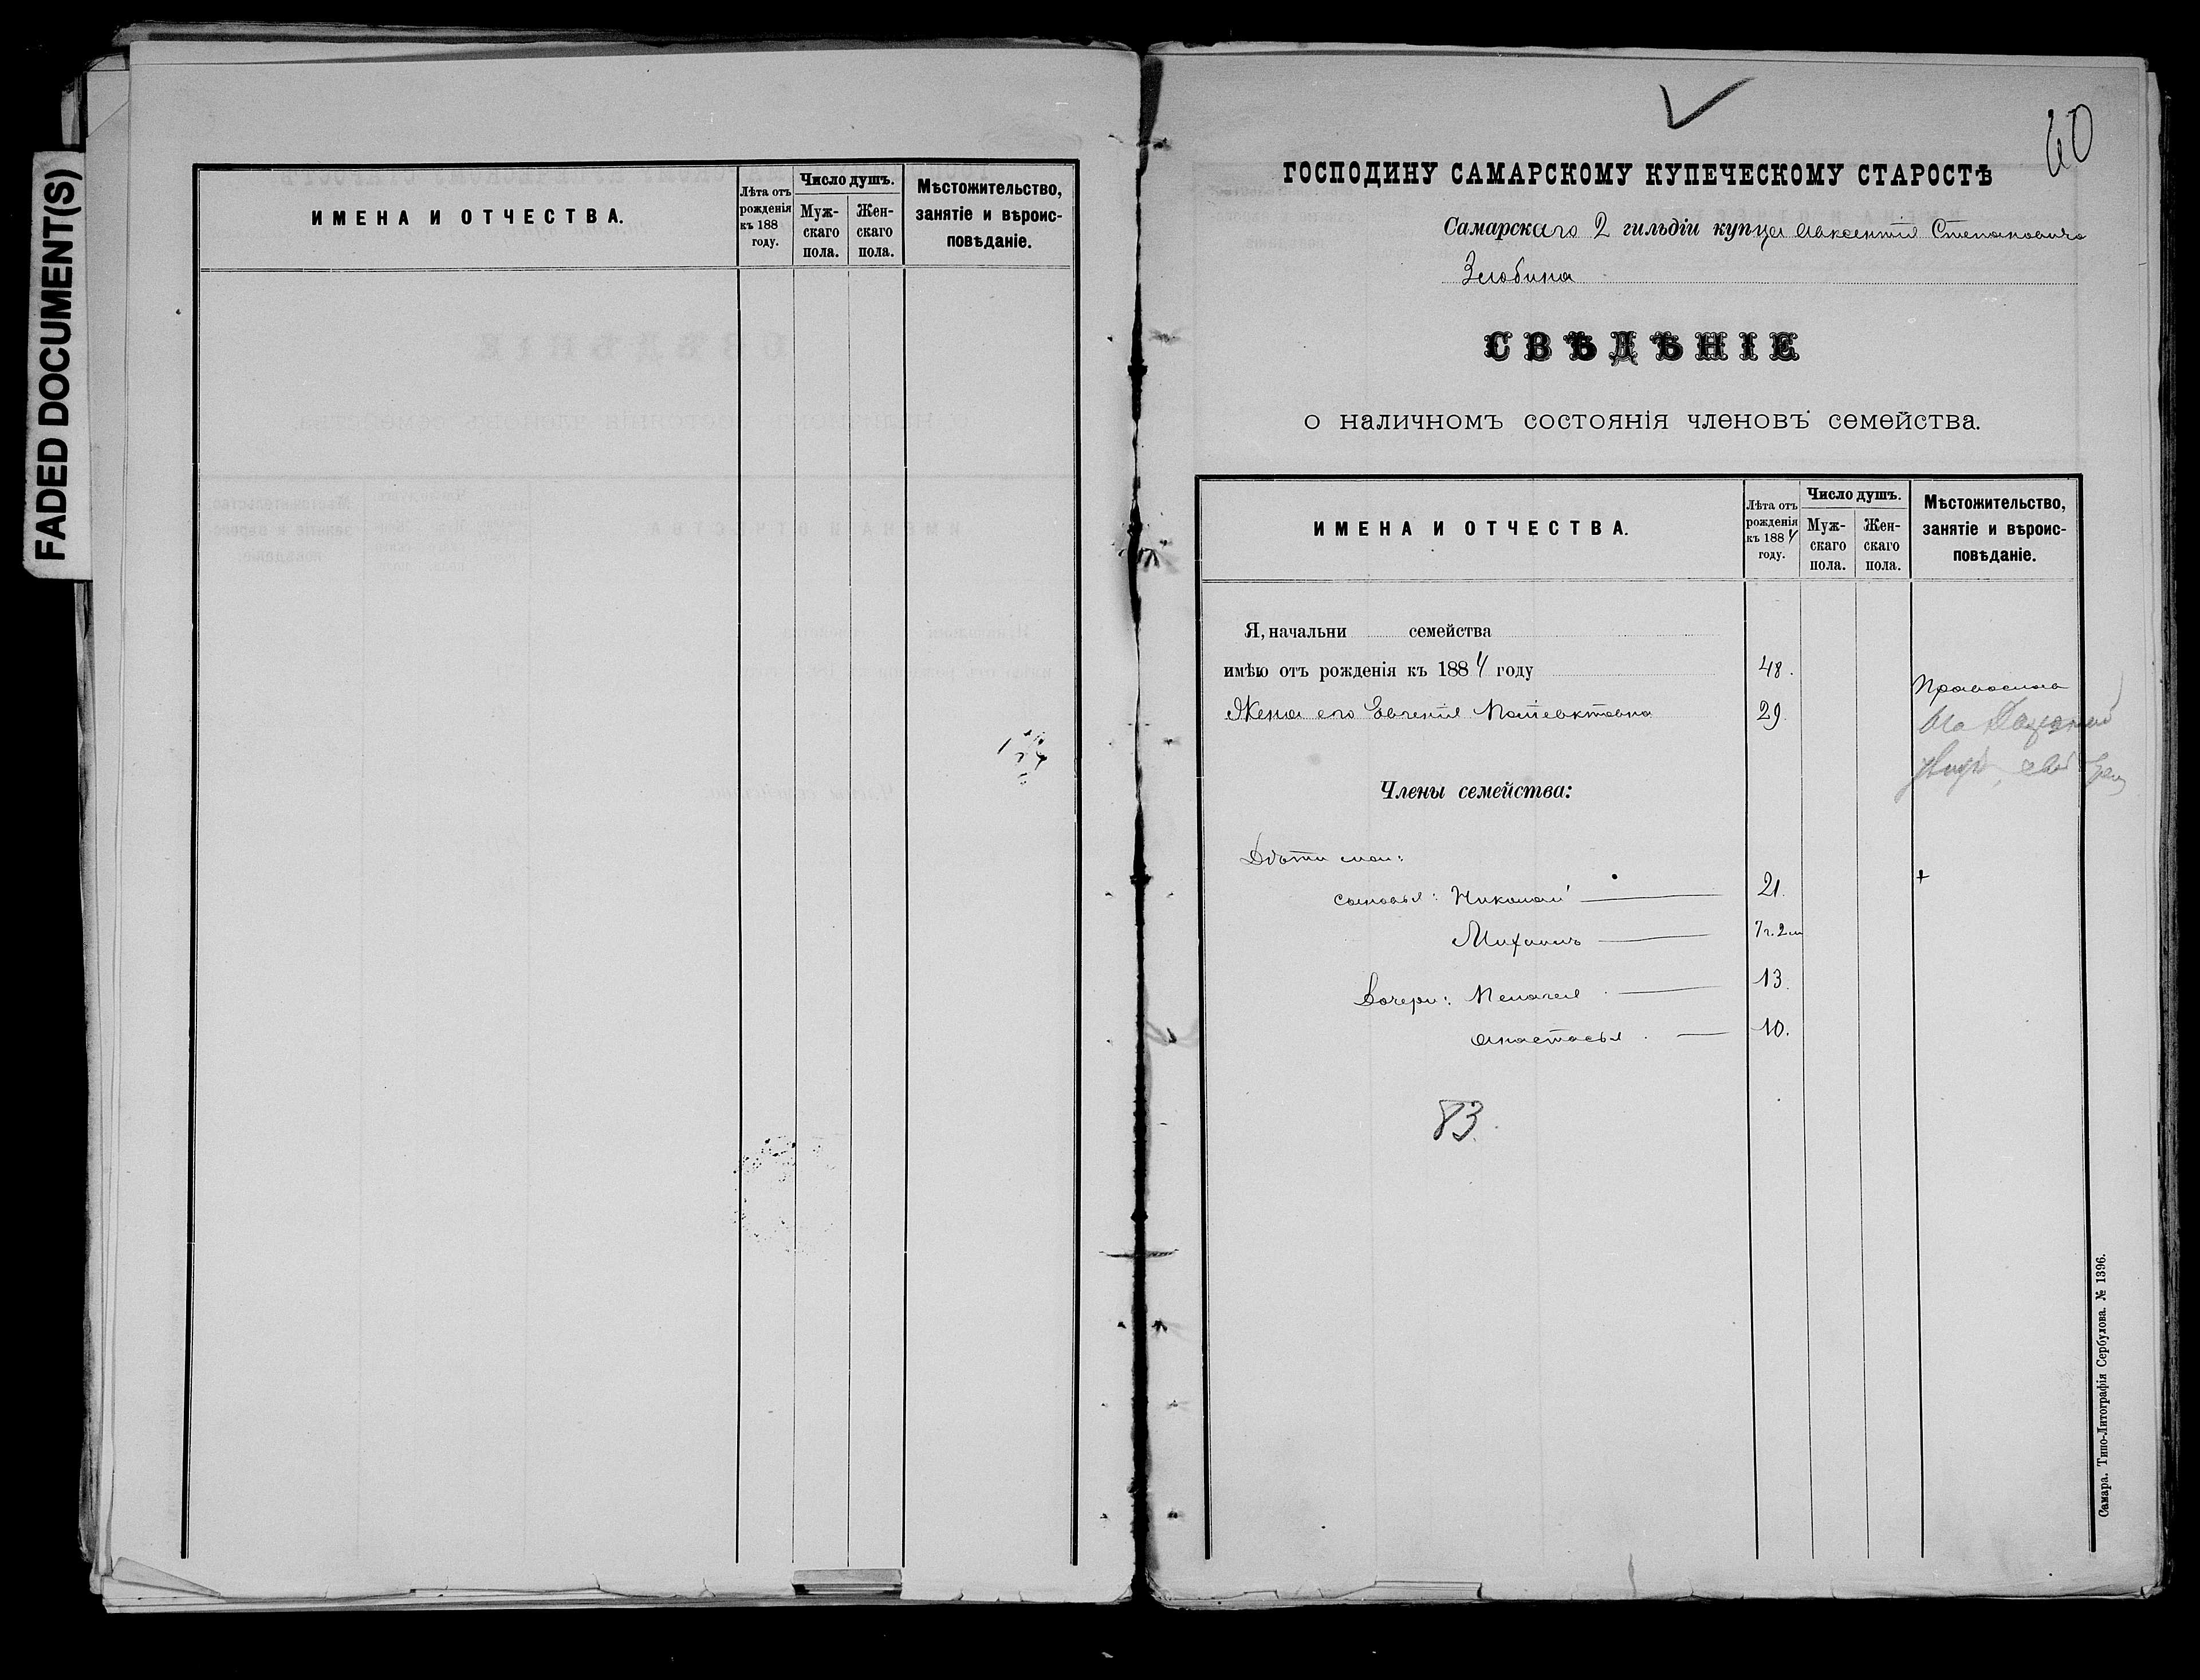 FADED DOCUMENT(S)
ИМЕНА И ОТЧЕСТВА.
Лѣта отъ рожденія къ 188 году.
Число душъ.
Мужскаго пола.
Женскаго пола.
Мѣстожительство, занятіе и вѣроисповѣданіе.
60
ГОСПОДИНУ САМАРСКОМУ КУПЕЧЕСКОМУ СТАРОСТѢ
Самарскаго 2 гильдіи купца Авксентія Степановича
Злобина
СВѢДѢНІЕ
о наличномъ состоянія членовъ семейства.
ИМЕНА И ОТЧЕСТВА.
Лѣта отъ рожденія къ 1884 году.
Число душъ.
Мужскаго пола.
Женскаго пола.
Мѣстожительство, занятіе и вѣроисповѣданіе.
Я, начальни семейства
имѣю отъ рожденія къ 1884 году 48.
Жена его Евгенія 29.
Члены семейства:
Дѣти мои:
сыновья: Николай 21.
Михаилъ 7 г. 2 м
Дочери: Пелагея 13.
Анастасья 10.
83.
Самара. Типо-Литографія Сербулова. № 1396.